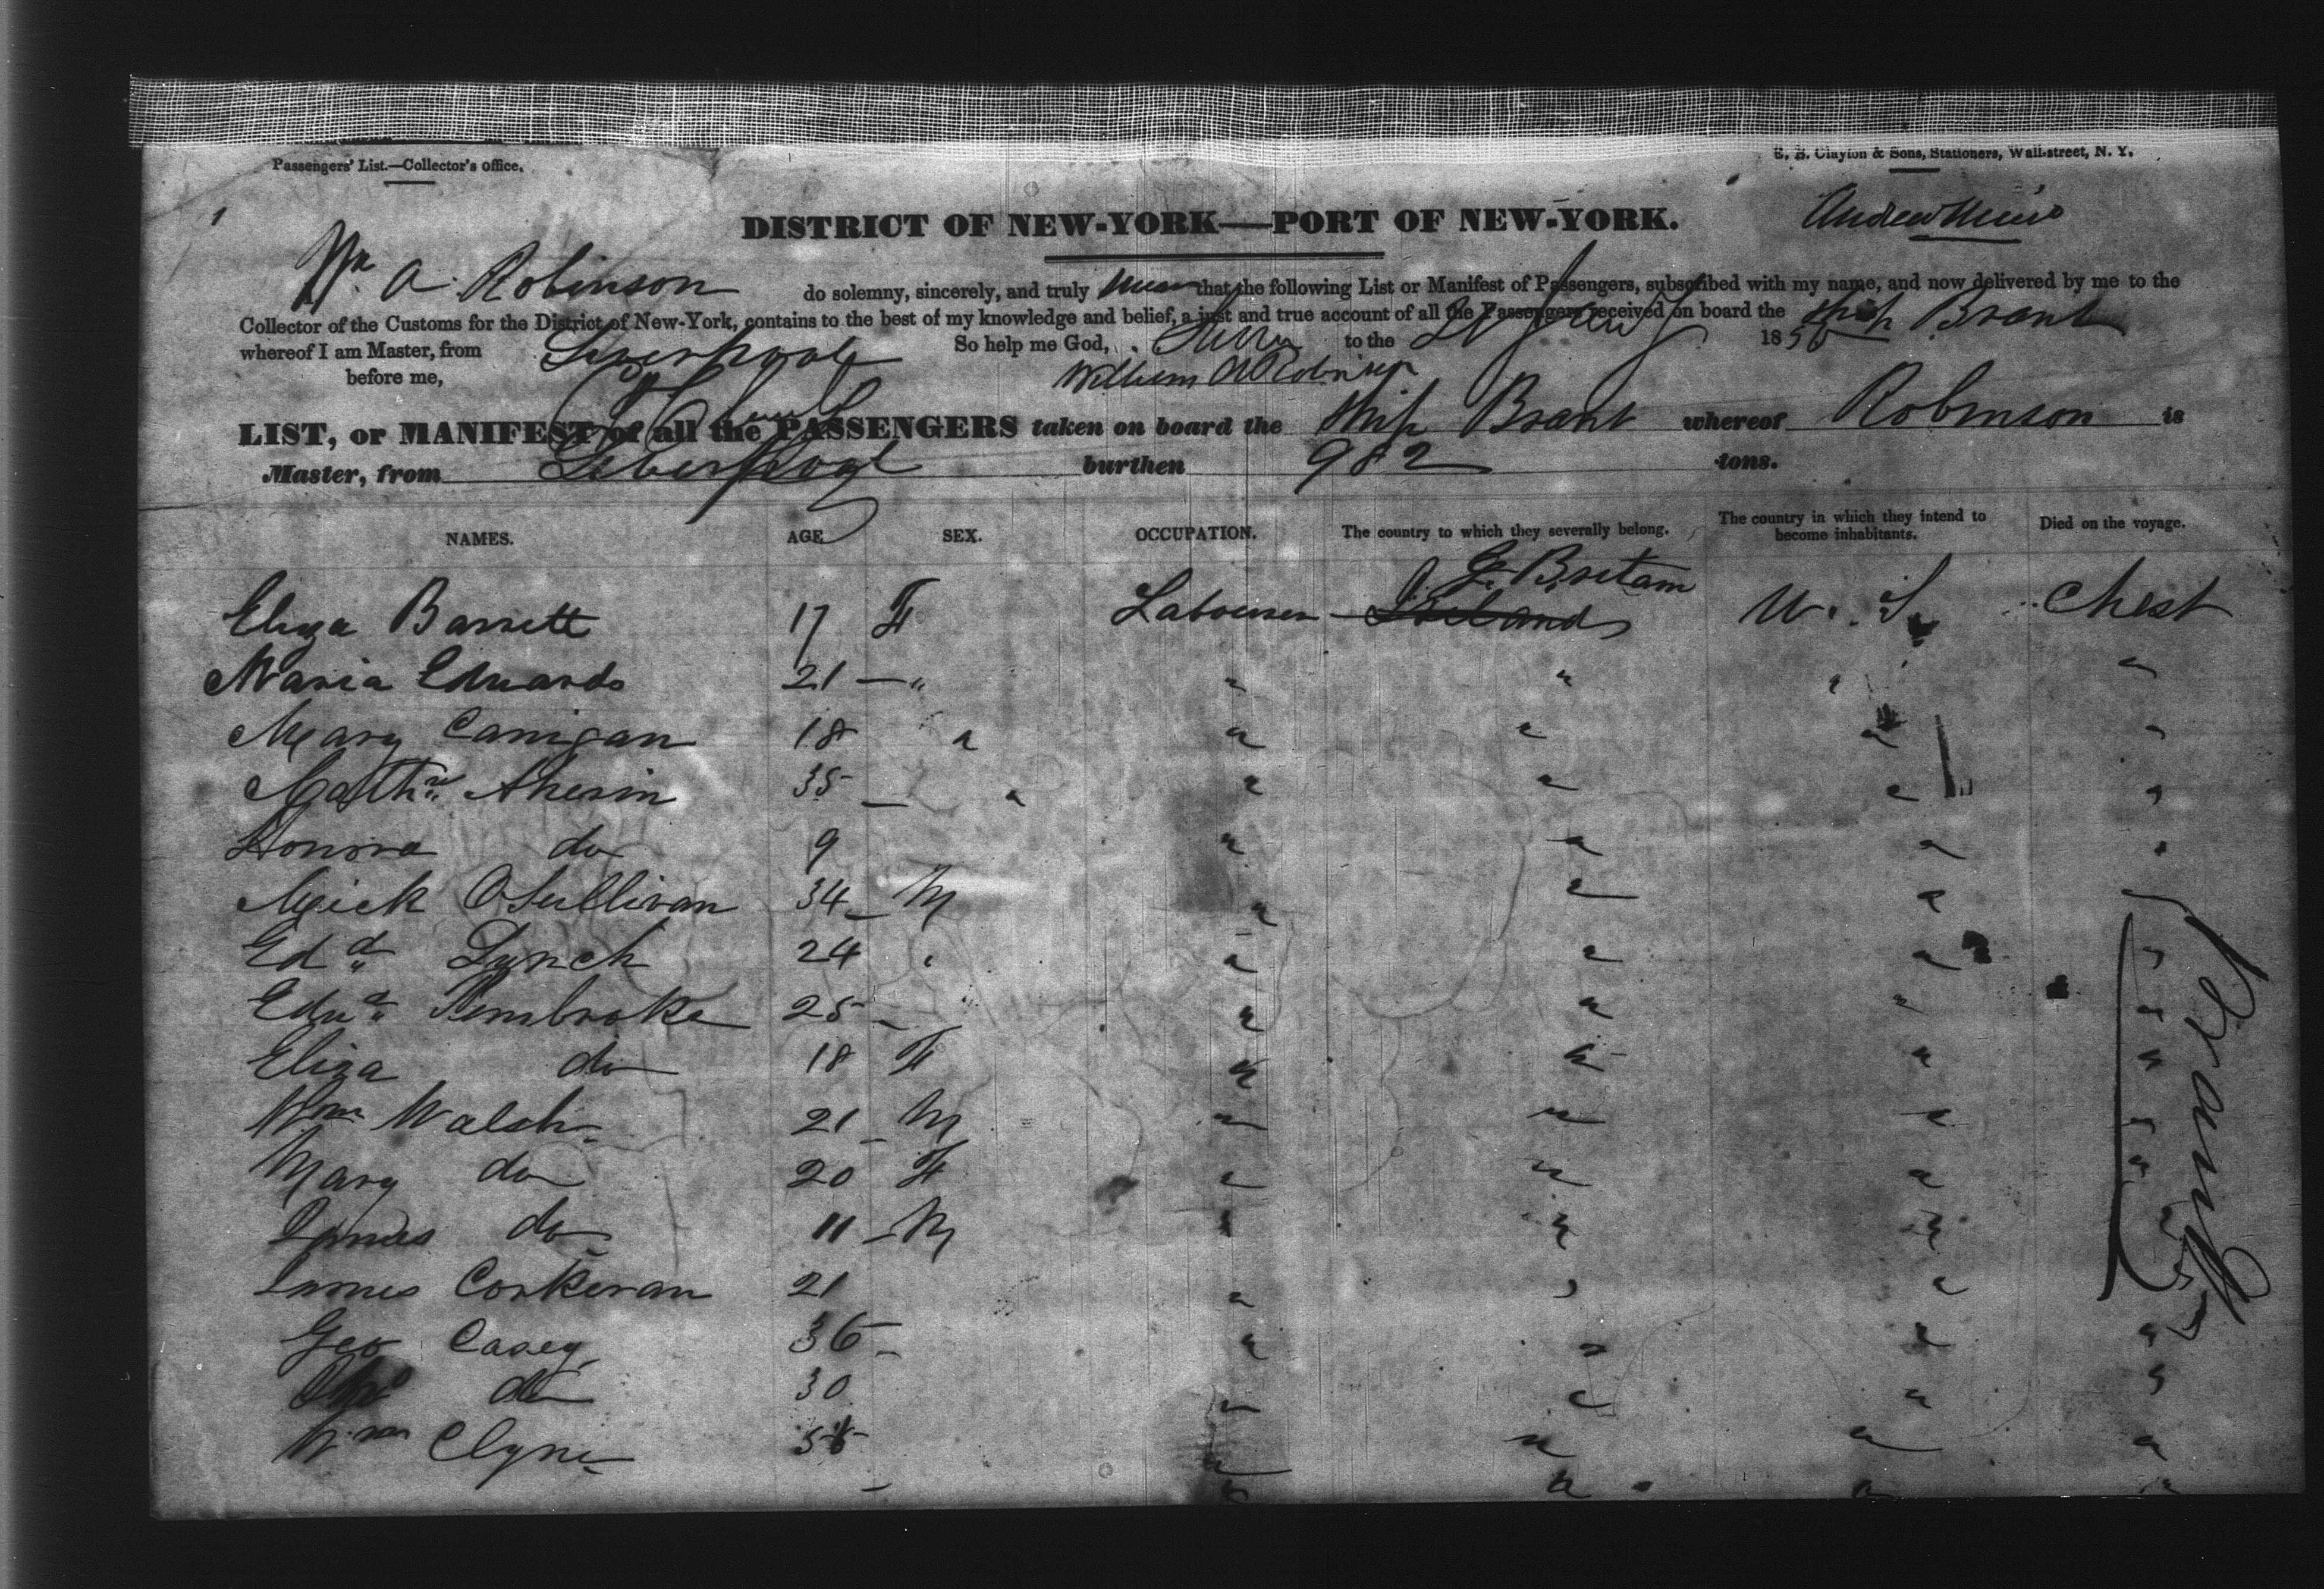 Passengers' List.—Collector's Office.
E. B. Clayton & Sons, Stationers, Wall-street, N. Y.
DISTRICT OF NEW-YORK—PORT OF NEW-YORK.
Wm A. Robinson do solemny, sincerely, and truly swear that the following List or Manifest of Passengers, subscribed with my name, and now delivered by me to the
Collector of the Customs for the District of New-York, contains to the best of my knowledge and belief, a just and true account of all the Passengers received on board the Ship Brant
whereof I am Master, from Liverpool So help me God, to the 185
before me, William A Robinson
LIST, or MANIFEST of all the PASSENGERS taken on board the Ship Brant whereof Robinson is
Master, from Liverpool burthen 982 tons.
NAMES. AGE SEX. OCCUPATION. The country to which they severally belong. The country in which they intend to become inhabitants. Died on the voyage.
Gt. Britain
Eliza Barrett 17 F Labourer Ireland U. S. Chest
Maria Edwards 21 — " " " " "
Mary Carrigan 18 " " " " "
Mathw Aherin 35 — " " " " "
Honora do 9 " " " "
Mick OSullivan 34 — M " " " "
Edd Lynch 24 " " " " "
Edwd Pembroke 25 — " " " "
Eliza do 18 F " " " "
Wm Walsh 21 — M " " " "
Mary do 20 F " " " "
James do 11 — M " " "
James Corkeran 21 " " "
Geo Casey 36 — " " " "
do 30 " " " "
Wm Clyne " " " "